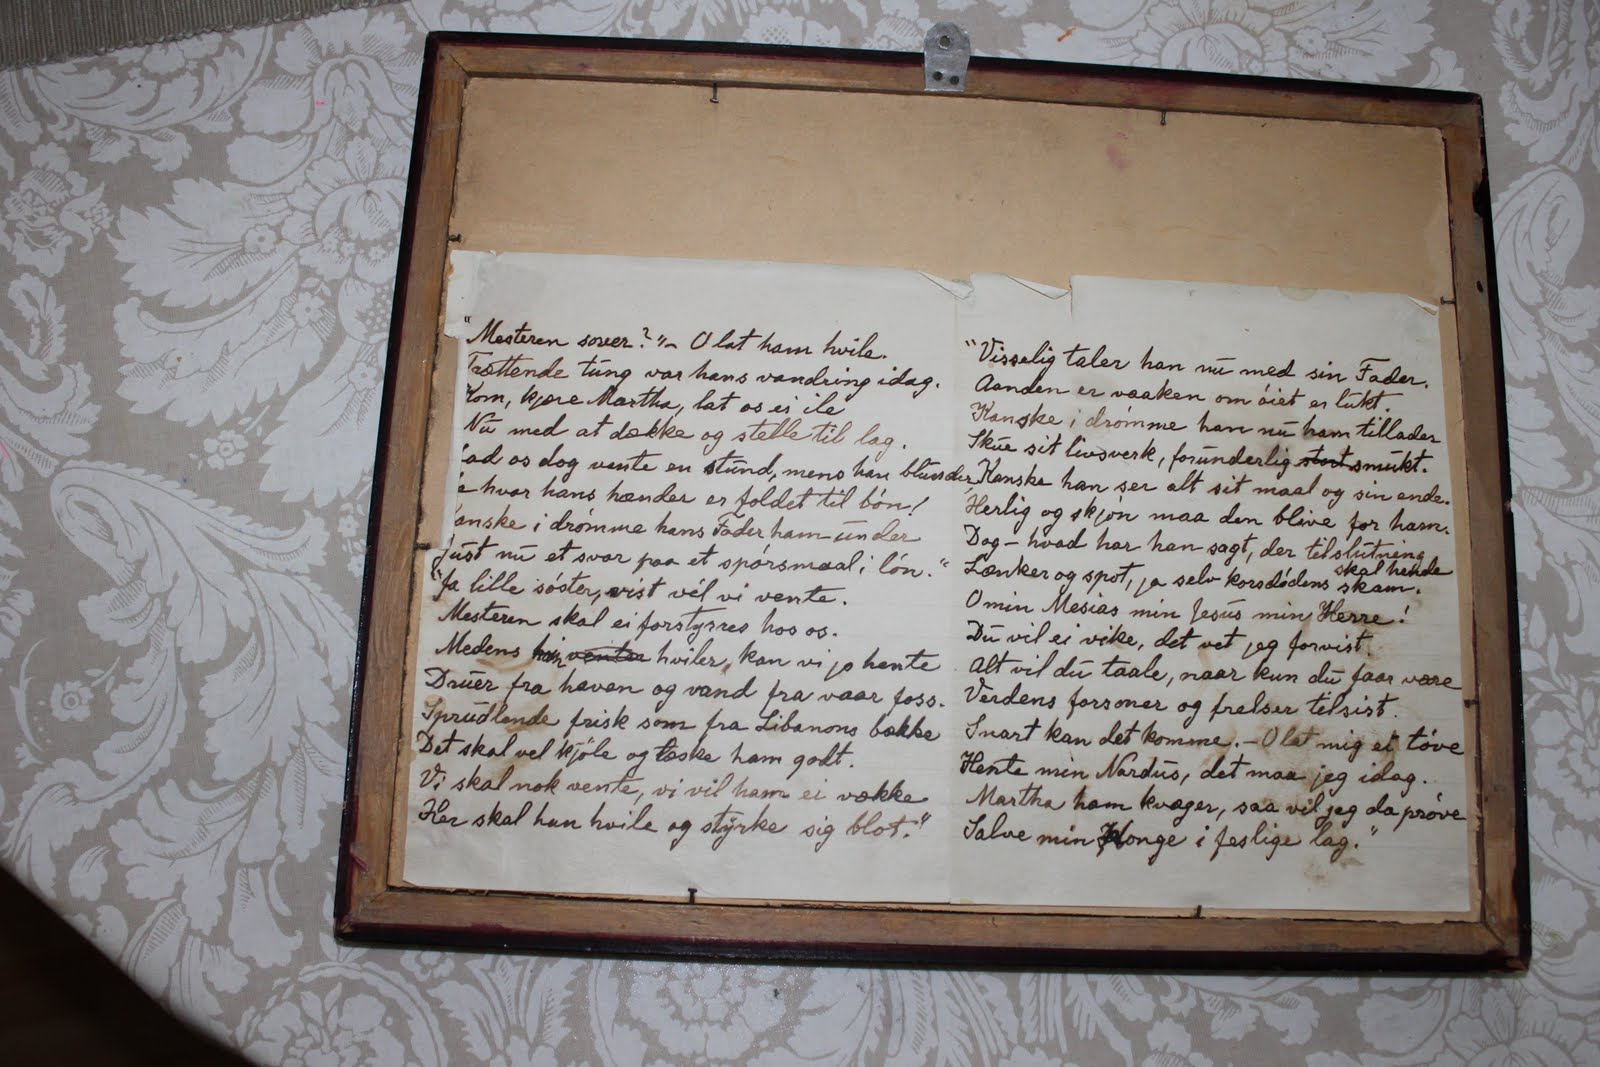 "Mesteren sover?" – O lat ham hvile.
Trættende tung var hans vandring idag.
Kom, kjære Martha, lat os ei ile
Nu med at dække og stelle til lag.
Lad os dog vente en stund, mens han blunder
Se hvor hans hænder er foldet til bön!
Kanske i drömme hans Fader ham under
Just nu et svar paa et spörsmaal i lön."
"Ja lille söster, vist vél vi vente.
Mesteren skal ei forstyrres hos os.
Medens han hviler, kan vi jo hente
Druer fra haven og vand fra vaar foss.
Sprudlende frisk som fra Libanons bække
Det skal vel kjöle og læske ham godt.
Vi skal nok vente, vi vil ham ei vække
Her skal han hvile og styrke sig blot."
"Visselig taler han nu med sin Fader.
Aanden er vaaken om öiet er lukt.
Kanske i drömme han nu ham tillader
Skue sit livsverk, forunderlig stort smukt.
Kanske han ser alt sit maal og sin ende.
Herlig og skjön maa den blive for ham.
Dog – hvad har han sagt, der tilslutning
skal hende
Lænker og spot, ja selv korsdödens skam.
O min Mesias min Jesus min Herre!
Du vil ei vike, det vet jeg forvist.
Alt vil du taale, naar kun du faar være
Verdens forsoner og frelser tilsist.
Snart kan det komme. – O lat mig ei töve
Hente min Nardus, det maa jeg idag.
Martha ham kvæger, saa vil jeg da pröve
Salve min Konge i feslige lag."